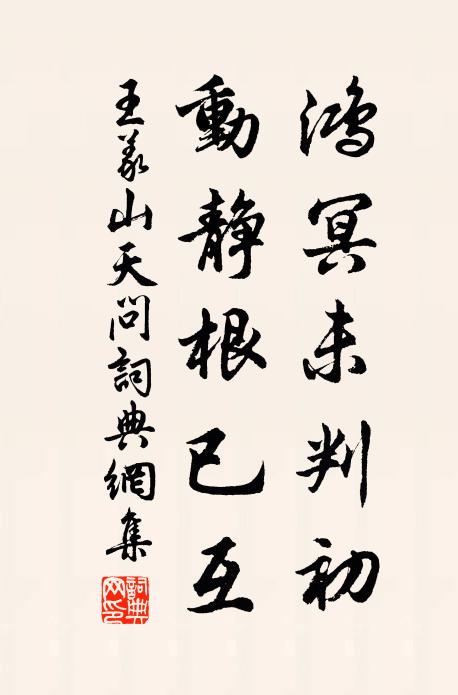 鴻冥未判初
動静根已互
王義山天問詞典網集
詞典网印